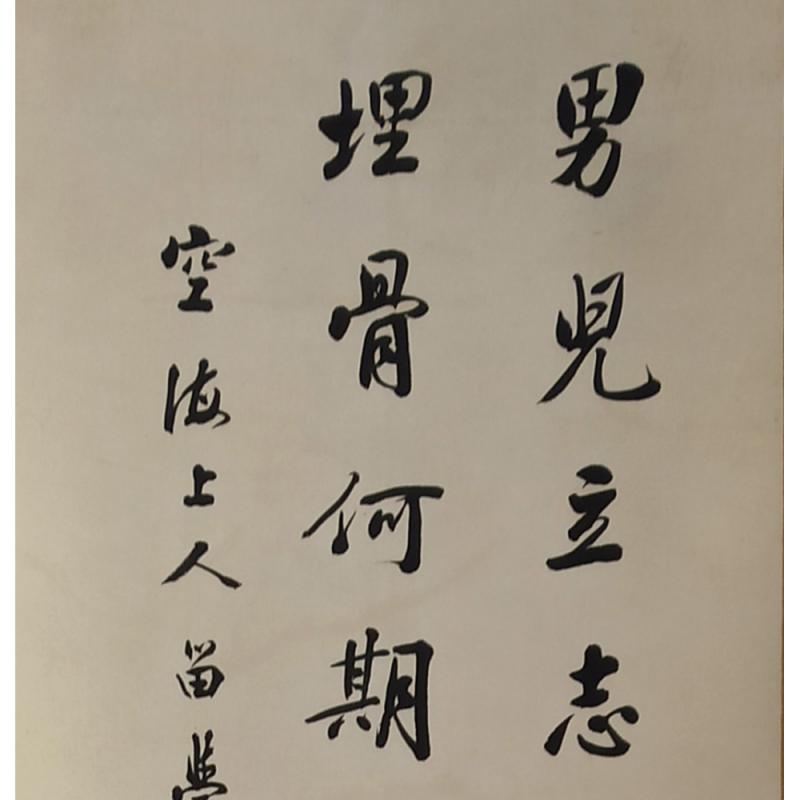 男児立志
埋骨何期
空海上人留學